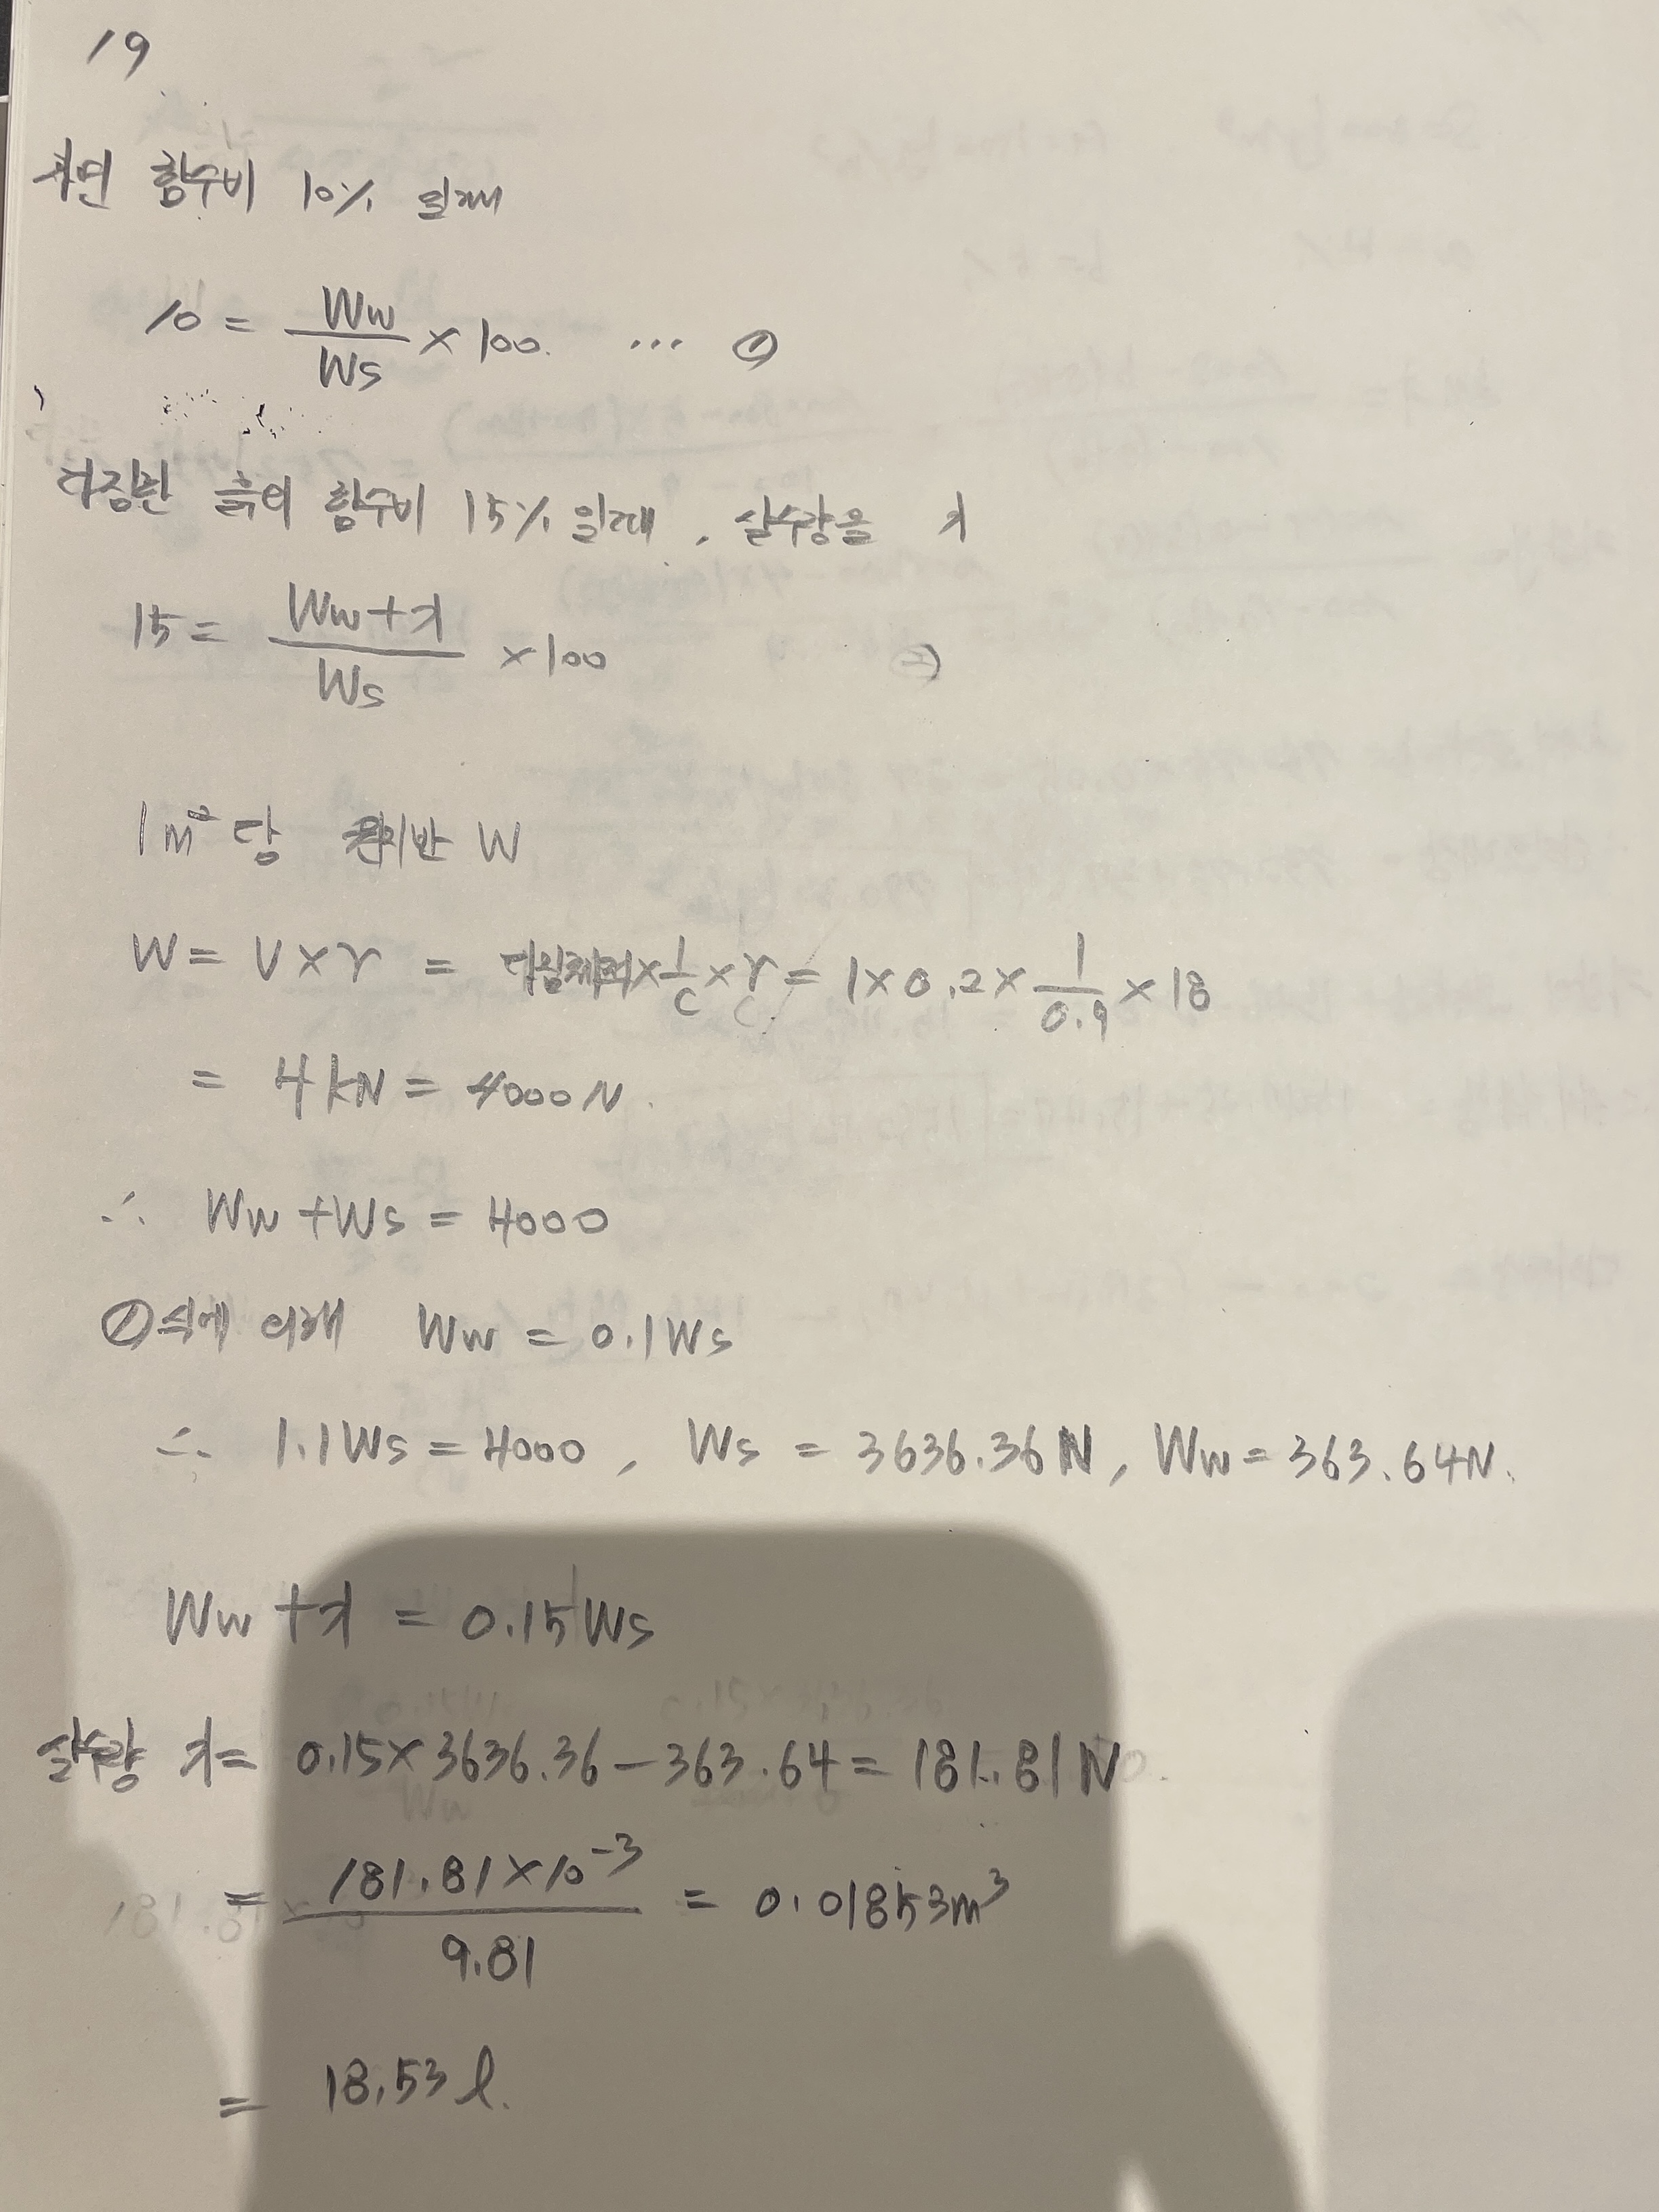 19
자연 함수비 10% 일때
10 = Ww/Ws × 100. ... ①
다짐한 흙의 함수비 15% 일때, 살수량을 x
15 = (Ww+x)/Ws × 100 ②
1m² 당 원지반 W
W = V×γ = 다짐체적×1/C×γ = 1×0.2×1/0.9×18
= 4kN = 4000N.
∴ Ww+Ws = 4000
①식에 의해 Ww = 0.1Ws
∴ 1.1Ws = 4000, Ws = 3636.36N, Ww = 363.64N.
Ww+x = 0.15Ws
살수량 x = 0.15×3636.36-363.64 = 181.81N
= 181.81×10⁻³/9.81 = 0.01853m³
= 18.53 l.